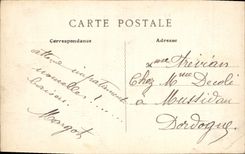 CARTE POSTALE
Correspondance
Adresse
attend impatiemment
nouvelles!....
baisers.
Margot
Chez Mme Decoli
à Mussidan
Dordogne